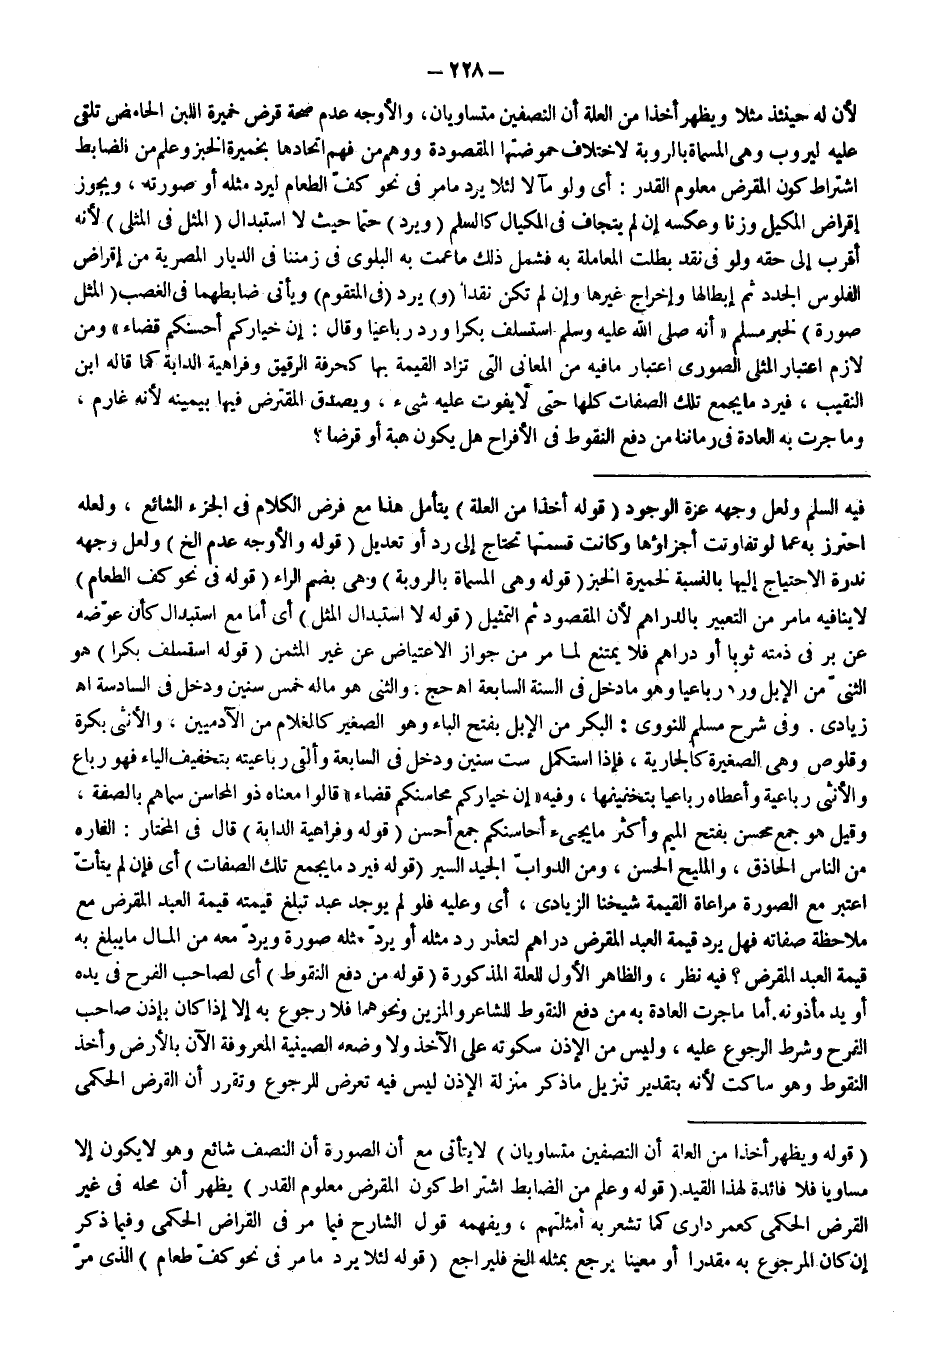 — ٢٢٨ —
لأن له حينئذ مثلا ويظهر أخذا من العلة أن النصفين متساويان، والأوجه عدم صحة قرض خميرة اللبن الحامض تلقى
عليه ليروب وهى المسماة بالروبة لاختلاف حموضتها المقصودة ووهم من فهم اتحادها بخميرة الخبز وعلم من الضابط
اشتراط كون المقرض معلوم القدر : أى ولو مآلا لئلا يرد مامر فى نحو كفّ الطعام ليرد مثله أو صورته ، ويجوز
إقراض المكيل وزنا وعكسه إن لم يتجاف فى المكيال كالسلم ( ويرد ) حتما حيث لا استبدال ( المثل فى المثلى ) لأنه
أقرب إلى حقه ولو فى نقد بطلت المعاملة به فشمل ذلك ماعمت به البلوى فى زمننا فى الديار المصرية من إقراض
الفلوس الجدد ثم إبطالها وإخراج غيرها وإن لم تكن نقدا (و) يرد (فى المتقوم) ويأتى ضابطهما فى الغصب ( المثل
صورة ) لخبر مسلم « أنه صلى الله عليه وسلم استسلف بكرا ورد رباعيا وقال : إن خياركم أحسنكم قضاء » ومن
لازم اعتبار المثلى الصورى اعتبار مافيه من المعانى التى تزاد القيمة بها كحرفة الرقيق وفراهية الدابة كما قاله ابن
النقيب ، فيرد مايجمع تلك الصفات كلها حتى لايفوت عليه شىء ، ويصدق المقترض فيها بيمينه لأنه غارم ،
وماجرت به العادة فى زماننا من دفع النقوط فى الأفراح هل يكون هبة أو قرضا ؟
فيه السلم ولعل وجهه عزة الوجود ( قوله أخذا من العلة ) يتأمل هذا مع فرض الكلام فى الجزء الشائع ، ولعله
احترز به عما لو تفاوتت أجزاؤها وكانت قسمتها تحتاج إلى رد أو تعديل ( قوله والأوجه عدم الخ ) ولعل وجهه
ندرة الاحتياج إليها بالنسبة لخميرة الخبز ( قوله وهى المسماة بالروبة ) وهى بضم الراء ( قوله فى نحو كف الطعام )
لاينافيه مامر من التعبير بالدراهم لأن المقصود ثم التمثيل ( قوله لا استبدال المثل ) أى أما مع استبدال كأن عوّضه
عن بر فى ذمته ثوبا أو دراهم فلا يمتنع لما مر من جواز الاعتياض عن غير المثمن ( قوله استسلف بكرا ) هو
الثنىّ من الإبل ورد رباعيا وهو مادخل فى السنة السابعة اه حج . والثنى هو ماله خمس سنين ودخل فى السادسة اه
زيادى . وفى شرح مسلم للنووى : البكر من الإبل بفتح الباء وهو الصغير كالغلام من الآدميين ، والأنثى بكرة
وقلوص وهى الصغيرة كالجارية ، فإذا استكمل ست سنين ودخل فى السابعة وألقى رباعيته بتخفيف الياء فهو رباع
والأنثى رباعية وأعطاه رباعيا بتخفيفها ، وفيه « إن خياركم محاسنكم قضاء » قالوا معناه ذو المحاسن سماهم بالصفة ،
وقيل هو جمع محسن بفتح الميم وأكثر مايجىء أحاسنكم جمع أحسن ( قوله وفراهية الدابة ) قال فى المختار : الفاره
من الناس الحاذق ، والمليح الحسن ، ومن الدوابّ الجيد السير (قوله فيرد مايجمع تلك الصفات ) أى فإن لم يتأتّ
اعتبر مع الصورة مراعاة القيمة شيخنا الزيادى ، أى وعليه فلو لم يوجد عبد تبلغ قيمته قيمة العبد المقرض مع
ملاحظة صفاته فهل يرد قيمة العبد المقرض دراهم لتعذر رد مثله أو يردّ مثله صورة ويردّ معه من المال مايبلغ به
قيمة العبد المقرض ؟ فيه نظر ، والظاهر الأول للعلة المذكورة ( قوله من دفع النقوط ) أى لصاحب الفرح فى يده
أو يد مأذونه. أما ماجرت العادة به من دفع النقوط للشاعر والمزين ونحوهما فلا رجوع به إلا إذا كان بإذن صاحب
الفرح وشرط الرجوع عليه ، وليس من الإذن سكوته على الآخذ ولا وضعه الصينية المعروفة الآن بالأرض وأخذ
النقوط وهو ساكت لأنه بتقدير تنزيل ماذكر منزلة الإذن ليس فيه تعرض للرجوع وتقرر أن القرض الحكمى
( قوله ويظهر أخذا من العلة أن النصفين متساويان ) لايتأتى مع أن الصورة أن النصف شائع وهو لايكون إلا
مساويا فلا فائدة لهذا القيد. ( قوله وعلم من الضابط اشتراط كون المقرض معلوم القدر ) يظهر أن محله فى غير
القرض الحكمى كعمر دارى كما تشعر به أمثلتهم ، ويفهمه قول الشارح فيما مر فى القراض الحكمى وفيما ذكر
إن كان المرجوع به مقدرا أو معينا يرجع بمثله الخ فليراجع ( قوله لئلا يرد مامر فى نحو كفّ طعام ) الذى مرّ